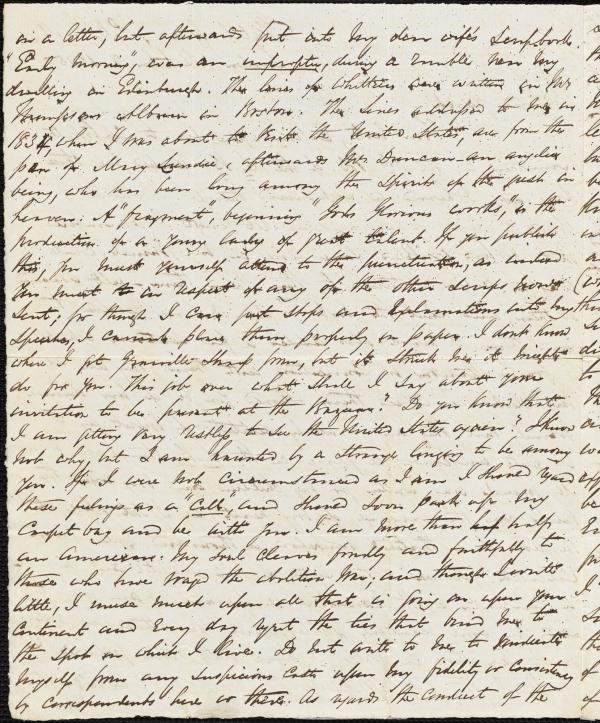 in a letter, but afterwards put into my dear wife's Scrapbook.
"Early morning", was an impromptu, during a ramble near my
dwelling in Edinburgh. The lines of Whittier were written in Mr
Thompsons Album in Boston. The lines addressed to me in
1834, when I was about to visit the United States, are from the
pen of Mary Lundie, afterwards Mrs Duncan - an angelic
being, who has been long among the Spirits of the just in
heaven. A "fragment", beginning "Gods Glorious works," is the
production of a young lady of great talent. If you publish
this, you must yourself attend to the punctuation, as indeed
you must in respect of any of the other scraps
sent; for though I can put stops and explanations into my
speeches, I cannot place them properly on paper. I dont know
where I got Granville Sharp from, but it struck me it might
do for you. This job over what shall I say about your
invitation to be present at the Bazaar? Do you know that
I am getting very restless to see the United States again? I know
not why, but I am haunted by a strange longing to be among
you. If I were not circumstanced as I am I should regard
these feelings as a "Call", and should soon pack up my
Carpet bag and be with you. I am more than half
an American. My soul cleaves fondly and faithfully to
those who have waged the abolition War; and though I write
little, I muse much upon all that is going on upon your
Continent and every day regret the ties that bind me to
the spot on which I live. Do not write to me to vindicate
myself from any suspicions cast upon my fidelity or consistency
by correspondents here or there. As regards the conduct of the